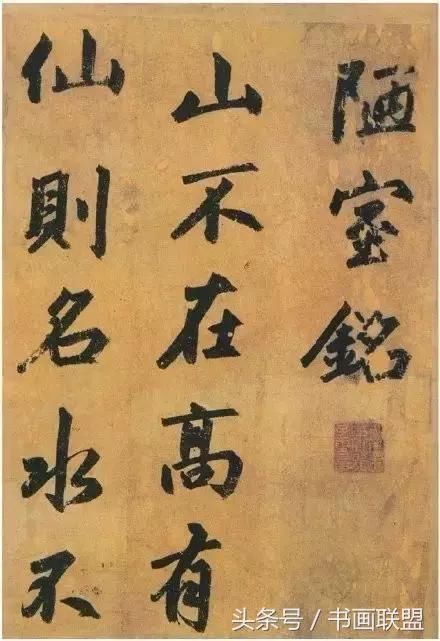 陋室銘
山不在高有
仙則名水不
头条号/书画联盟